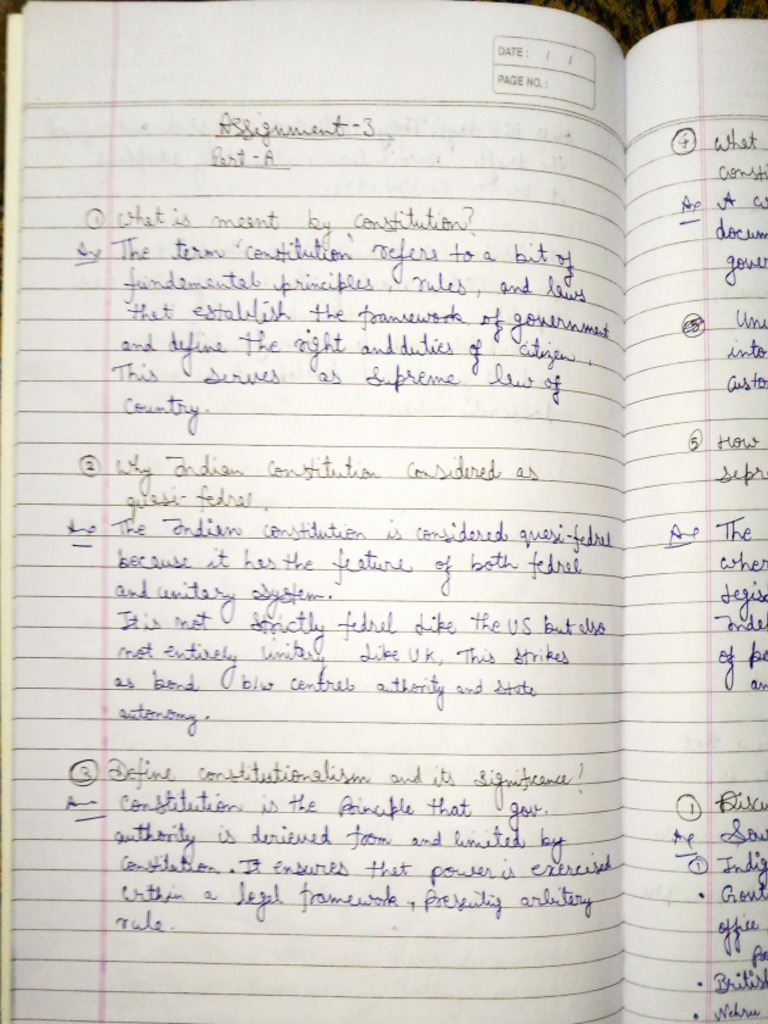 DATE: / /
PAGE NO.:
Assignment-3
Part-A
① What is meant by constitution?
As The term 'constitution' refers to a bit of
fundamental principles, rules, and laws
that establish the framework of government
and define the right and duties of citizen.
This serves as Supreme law of
country.
② Why Indian constitution considered as
quasi-fedrel.
Ans The Indian constitution is considered quasi-fedrel
because it has the feature of both fedrel
and unitary system.
It is not strictly fedrel like the US but also
not entirely unitary like UK, This strikes
as bond b/w centrel authority and state
autonomy.
③ Define constitutionalism and its significance!
Ans Constitution is the Principle that gov.
authority is derieved from and limited by
Constitution. It ensures that power is exercised
within a legel framework, arbitery
rule.
④ What
consti
As A
docum
gover
⑤ Uni
into
custo
⑤ How
sepre
As The
wher
Legis
Inde
of po
an
① Discu
As Sou
① Indig
• Gout
office
• British
• Nehru